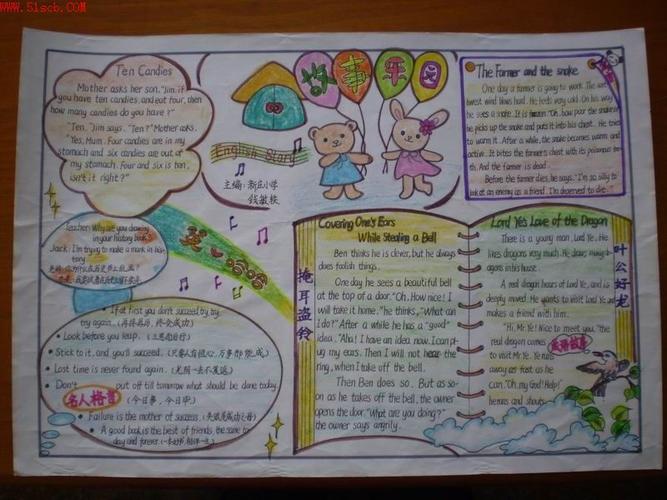 www.51scb.COM
Ten Candies
Mother asks her son, "Jim, if
you have ten candies, and eat four, then
how many candies do you have?"
"Ten." Jim says. "Ten?" Mother asks.
Yes, Mum. Four candies are in my
stomach and six candies are out of
my stomach. Four and six is ten,
isn't it right?"
故事乐园
English Story
主编:
小学
The Farmer and the snake
One day a farmer is going to work. The
west wind blows hard. He feels very cold. On his way
he sees a snake. It is frozen. "Oh, poor snake!"
he picks up the snake and puts it into his chest. He tries
to warm it. After a while, the snake becomes warm and
active. It bites the farmer's chest with its poisonous
th. And the farmer is dead.
Before the farmer dies, he says: "I'm so silly to
look at an enemy as a friend. I'm deserved to die."
Teacher: Why are you drawing
in your history book?
Jack: I'm trying to make a mark in his-
tory.
笑一
哈哈
If at first you don't succeed, try, try,
try again. (再接再厉，终会成功)
Look before you leap. (三思而后行)
Stick to it, and you'll succeed. (只要有恒心，万事都能成)
Lost time is never found again. (光阴一去不复返)
Don't put off till tomorrow what should be done today.
名人格言 (今日事，今日毕)
Failure is the mother of success. (失败是成功之母)
A good book is the best of friends, the same to-
day and forever. (一本好书，相伴一生)
掩耳盗铃
Covering One's Ears
While Stealing a Bell
Ben thinks he is clever, but he always
does foolish things.
One day he sees a beautiful bell
at the top of a door. "Oh, How nice! I
will take it home." he thinks, "What can
I do?" After a while he has a "good"
idea. "Aha! I have an idea now. I can p-
lug my ears. Then I will not hear the
ring, when I take off the bell.
Then Ben does so. But as so-
on as he takes off the bell, the owner
opens the door. "What are you doing?"
the owner says angrily.
Lord Ye's Love of the Dragon
叶公好龙
There is a young man, Lord Ye. He
likes dragons very much. He draws many d-
ragons in his house.
A real dragon hears of Lord Ye, and is
deeply moved. He wants to visit Lord Ye and
makes a friend with him.
"Hi, Mr Ye! Nice to meet you," the
real dragon comes
to visit Mr Ye. Ye runs
away as fast as he
can. "Oh, my God! Help!"
he runs and shouts.
英语故事